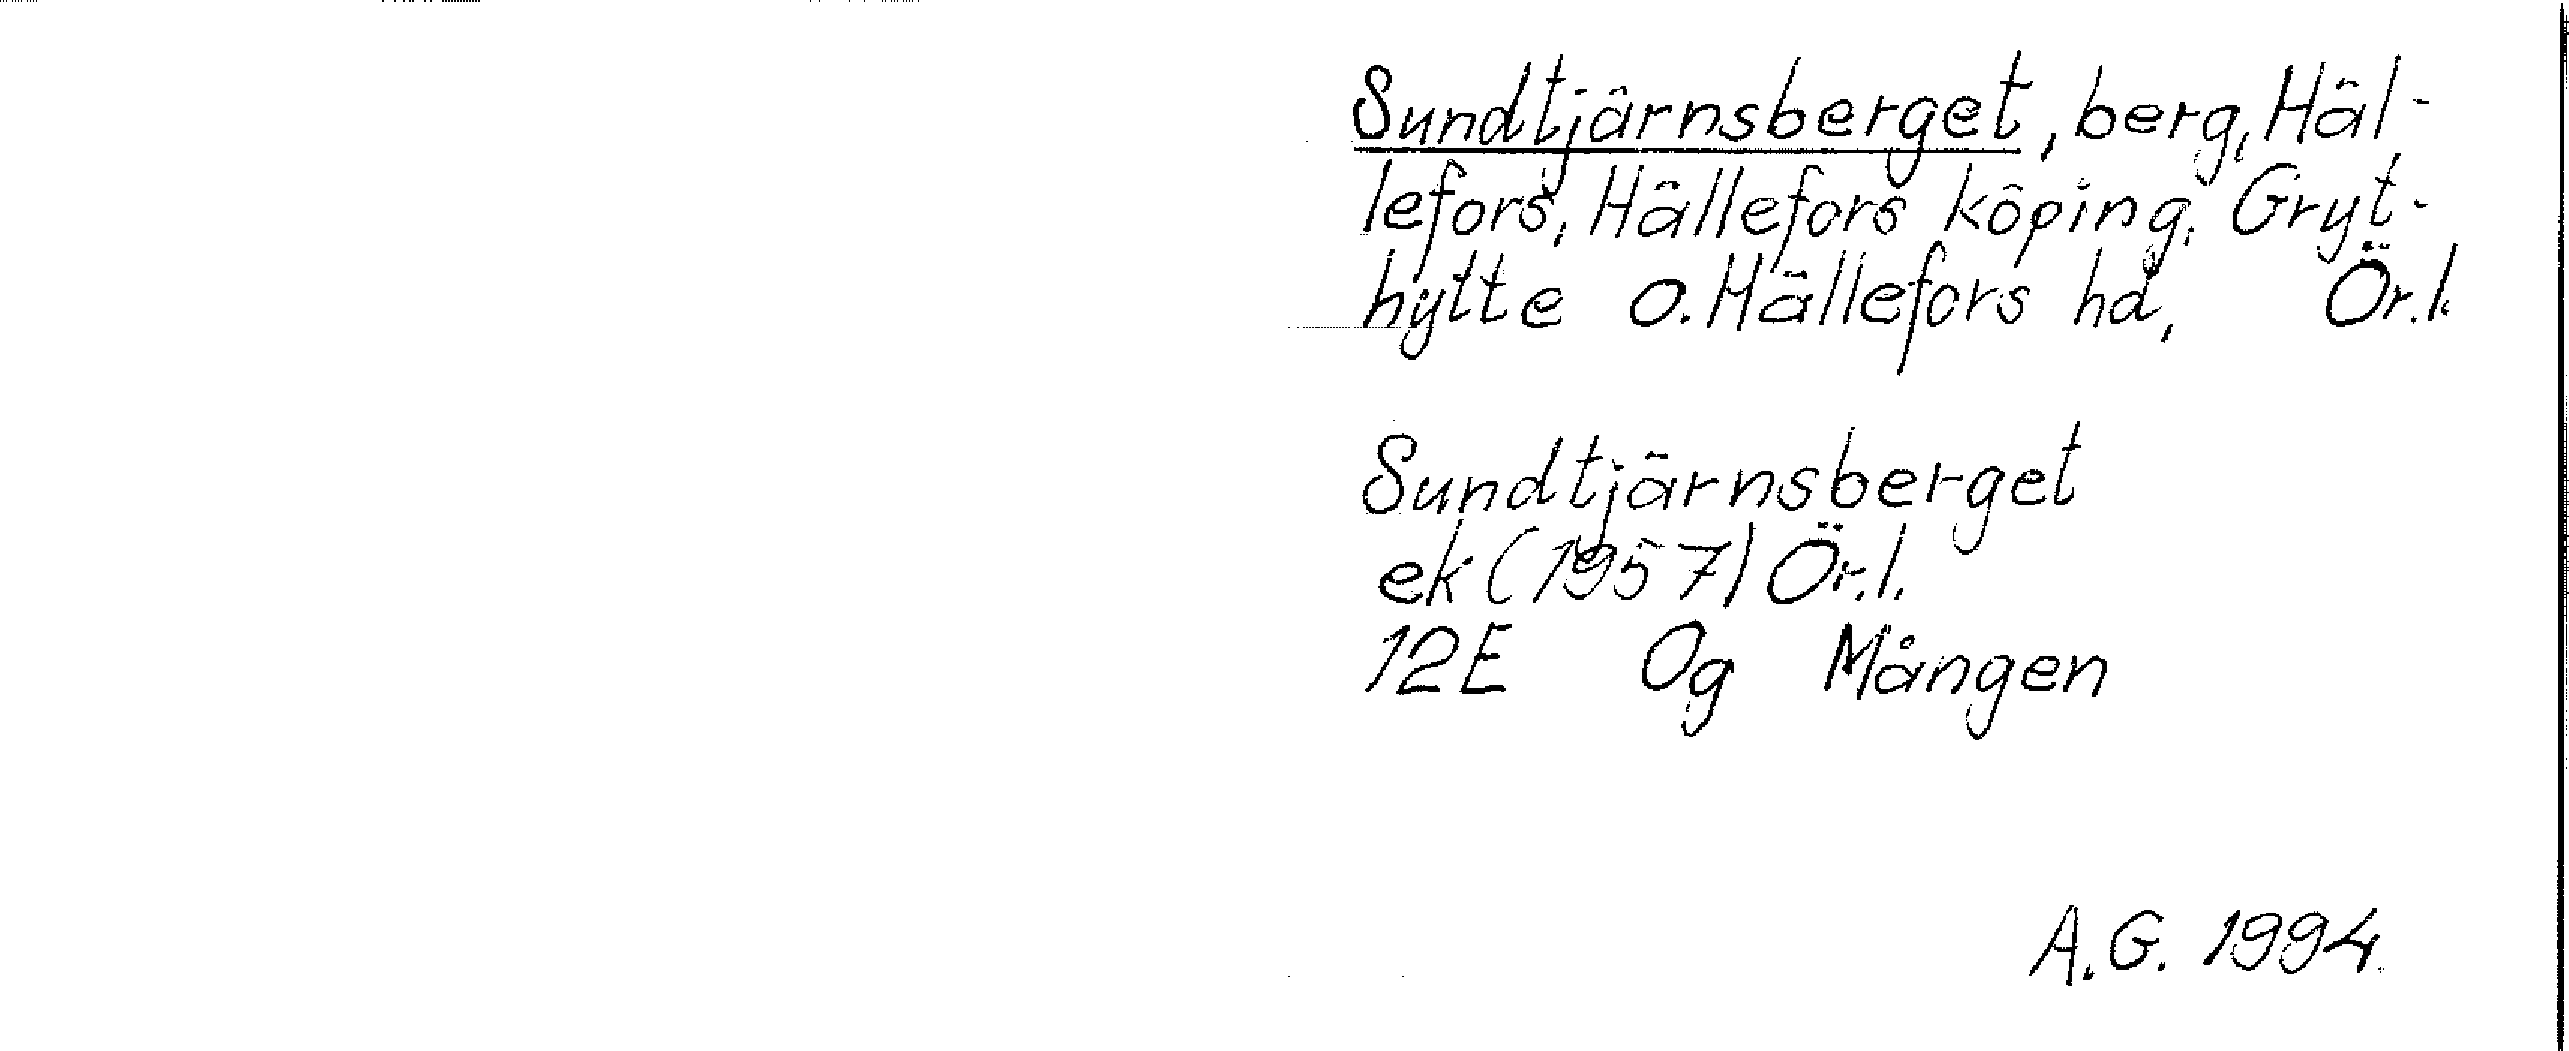 Sundtjärnsberget, berg, Häl-
lefors, Hällefors köping, Gryt-
hytte o. Hällefors hd, Ör.l.
Sundtjärnsberget
ek (1957) Ör.l.
12E 0g Mången
A.G. 1994.